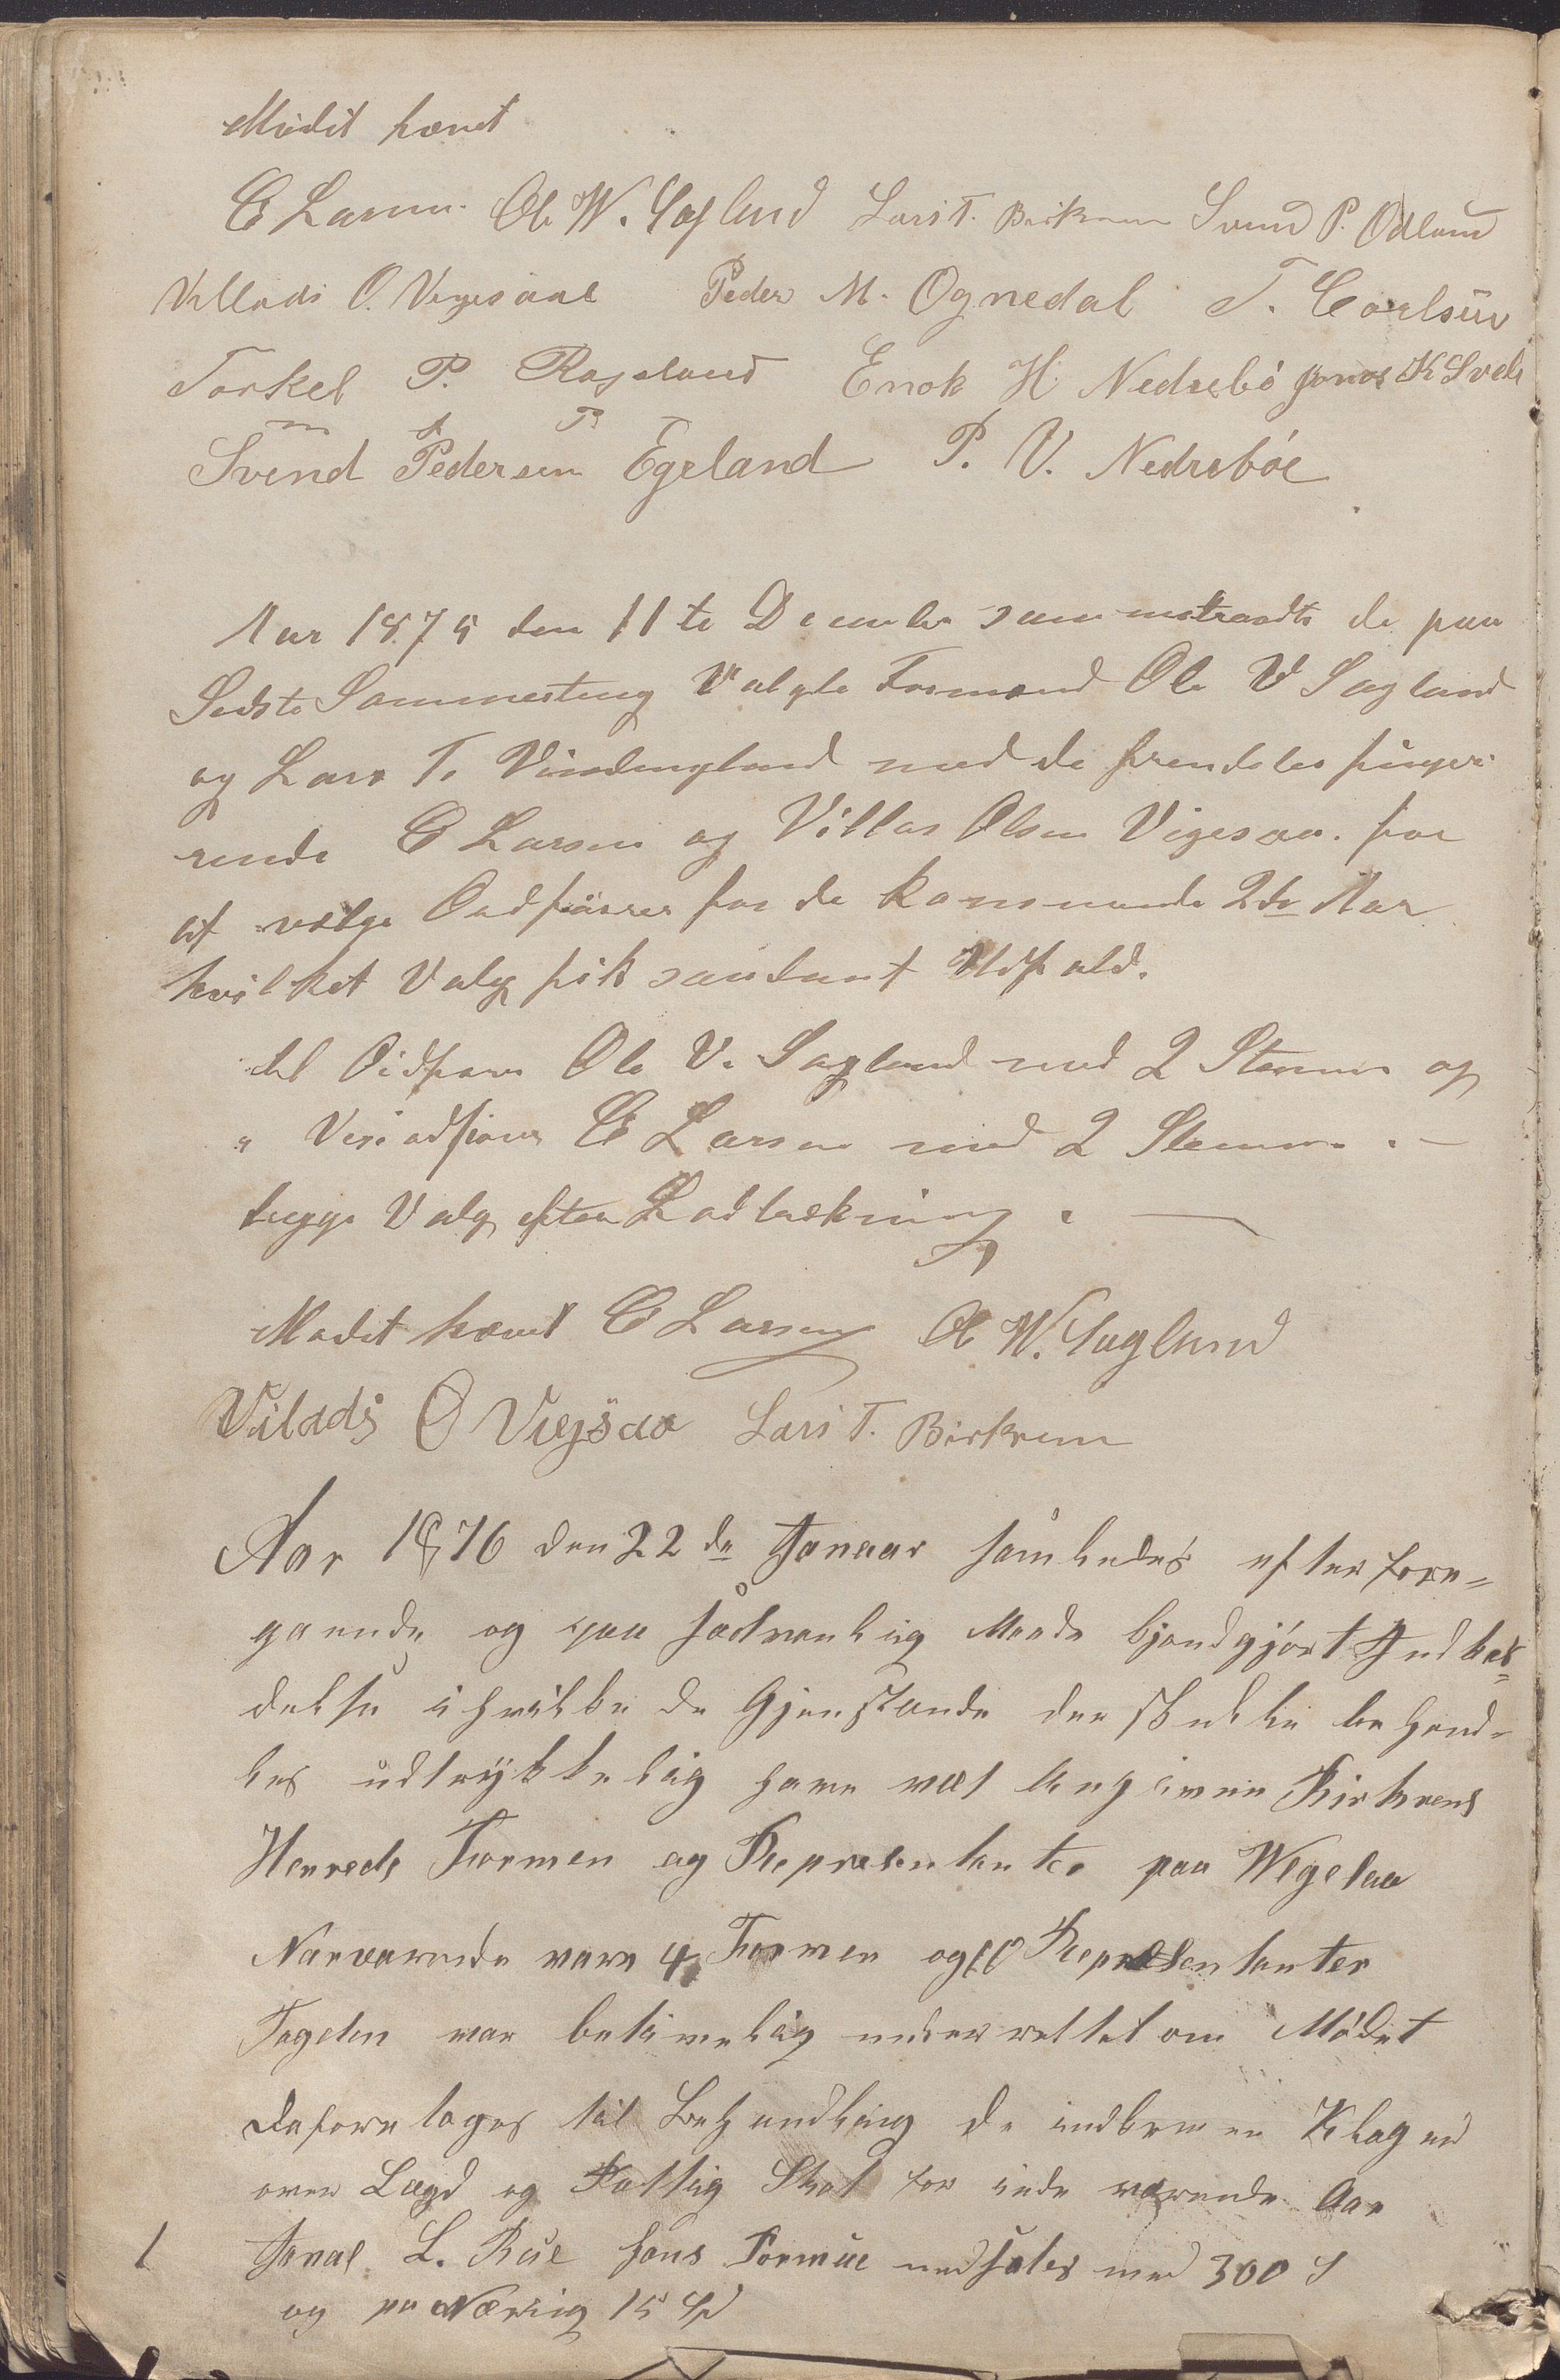 Mødit hævet
E Larsen Ole W. Sagland Lars T. Birkrem Svend P. Ødland
Vellads O. Vegesaae Peder M. Ognedal T. Carlsen
Torkel P. Rapstand Enok H Nedrebø Jonas K Svele
Svend Pedersen Egeland P. V. Nedrebøe
Aar 1875 den 11te December sammentraadte de paa
Sidste Sommerting Valgte Formænd Ole V Sagland
og Lars T. med de fremdeles funger-
rende E Larsen og Villas Olsen Vigesaa. for
at vælge Ordfører for de kommende 2de Aar
hvilket Valg fik saadant Udfald.
til Ordfører Ole V. Sagland med 2 Stemmer og
" Viseordfører E Larsen med 2 Stemmer. -
begge Valg efter Lodtrækning.
Modet hævet E Larsen Ole W. Sagland
Vilads O Vegsaa Lars T. Birkrem
Aar 1876 den 22de Januar samledes efter fore=
gaaende og paa sædvanlig Maade bjendgjørt Indkal=
delse i hvilke de Gjenstande der skulle behand-
les udtrykkelig have vært Birkrems
Herreds Formen og Representanter paa Wegesaa
Nærværende vare 4 Formen og 10 Representanter
Fogden var betimelig underrettet om Mødet
Deforetages til Behandling de indkomne Klager
over Lægd og Fattig Skat for inde værende Aar
1 Jonas L. Rue hans Formue nedsates med 300 S
og pa Næring 15 Spd